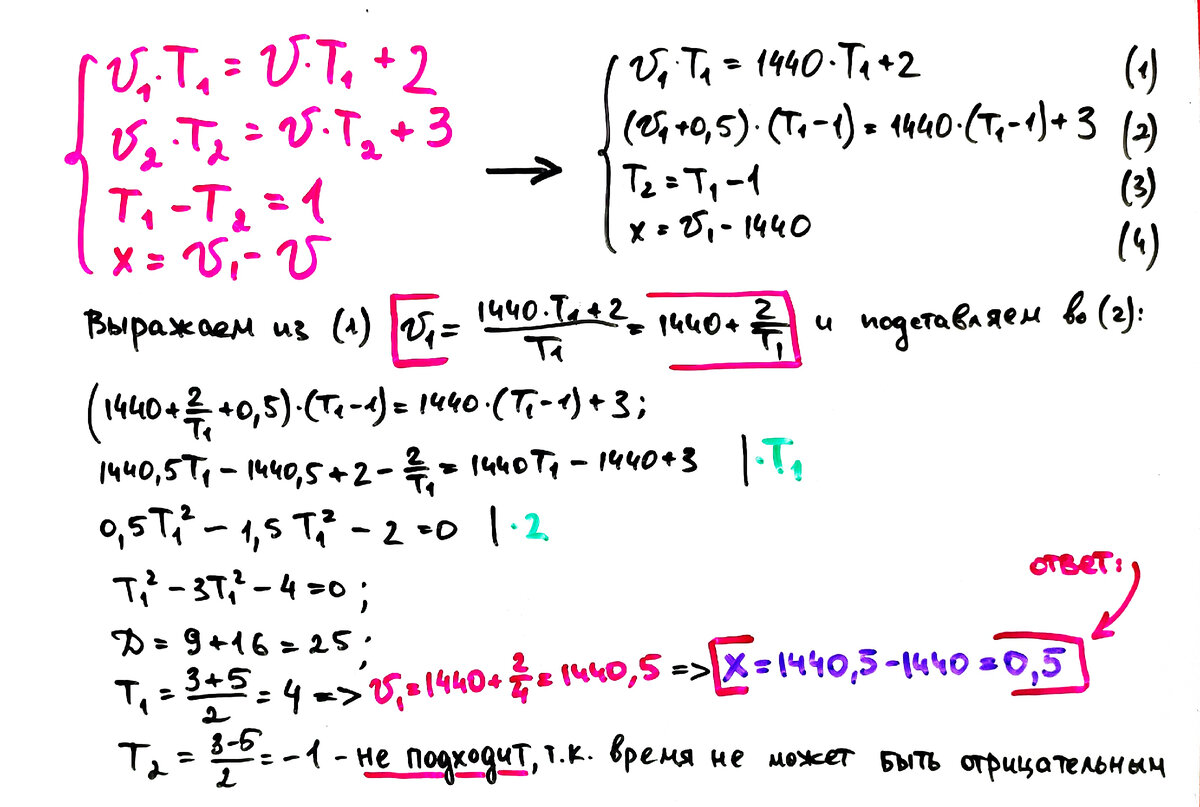 v₁·T₁ = v·T₁ + 2
v₂·T₂ = v·T₂ + 3
T₁ − T₂ = 1
x = v₁ − v
→
v₁·T₁ = 1440·T₁ + 2 (1)
(v₁ + 0,5)·(T₁ − 1) = 1440·(T₁ − 1) + 3 (2)
T₂ = T₁ − 1 (3)
x = v₁ − 1440 (4)
Выражаем из (1) v₁ = (1440·T₁ + 2)/T₁ = 1440 + 2/T₁ и подставляем во (2):
(1440 + 2/T₁ + 0,5)·(T₁ − 1) = 1440·(T₁ − 1) + 3;
1440,5T₁ − 1440,5 + 2 − 2/T₁ = 1440T₁ − 1440 + 3 | ·T₁
0,5T₁² − 1,5T₁² − 2 = 0 | ·2
T₁² − 3T₁² − 4 = 0;
ответ:
D = 9 + 16 = 25;
T₁ = (3+5)/2 = 4 => v₁ = 1440 + 2/4 = 1440,5 => x = 1440,5 − 1440 = 0,5
T₂ = (3−5)/2 = −1 − не подходит, т.к. время не может быть отрицательным